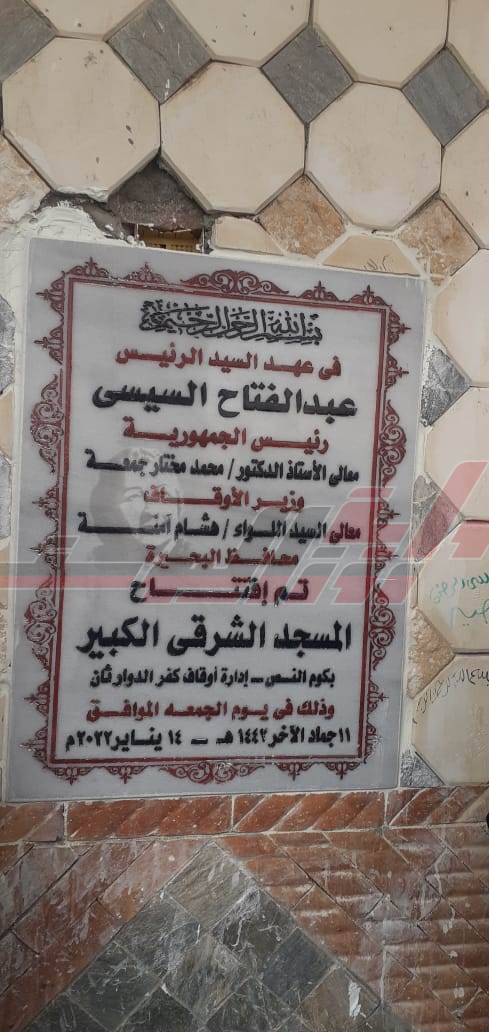 بسم الله الرحمن الرحيم
فى عهد السيد الرئيس
عبدالفتاح السيسى
رئيس الجمهورية
معالى الأستاذ الدكتور / محمد مختار جمعة
وزير الأوقاف
معالى السيد اللواء / هشام آمنة
محافظ البحيرة
تم إفتتاح
المسجد الشرقى الكبير
بكوم النص - إدارة أوقاف كفر الدوار ثان
وذلك فى يوم الجمعه الموافق
١١ جماد الآخر ١٤٤٣ هـ - ١٤ يناير ٢٠٢٢م